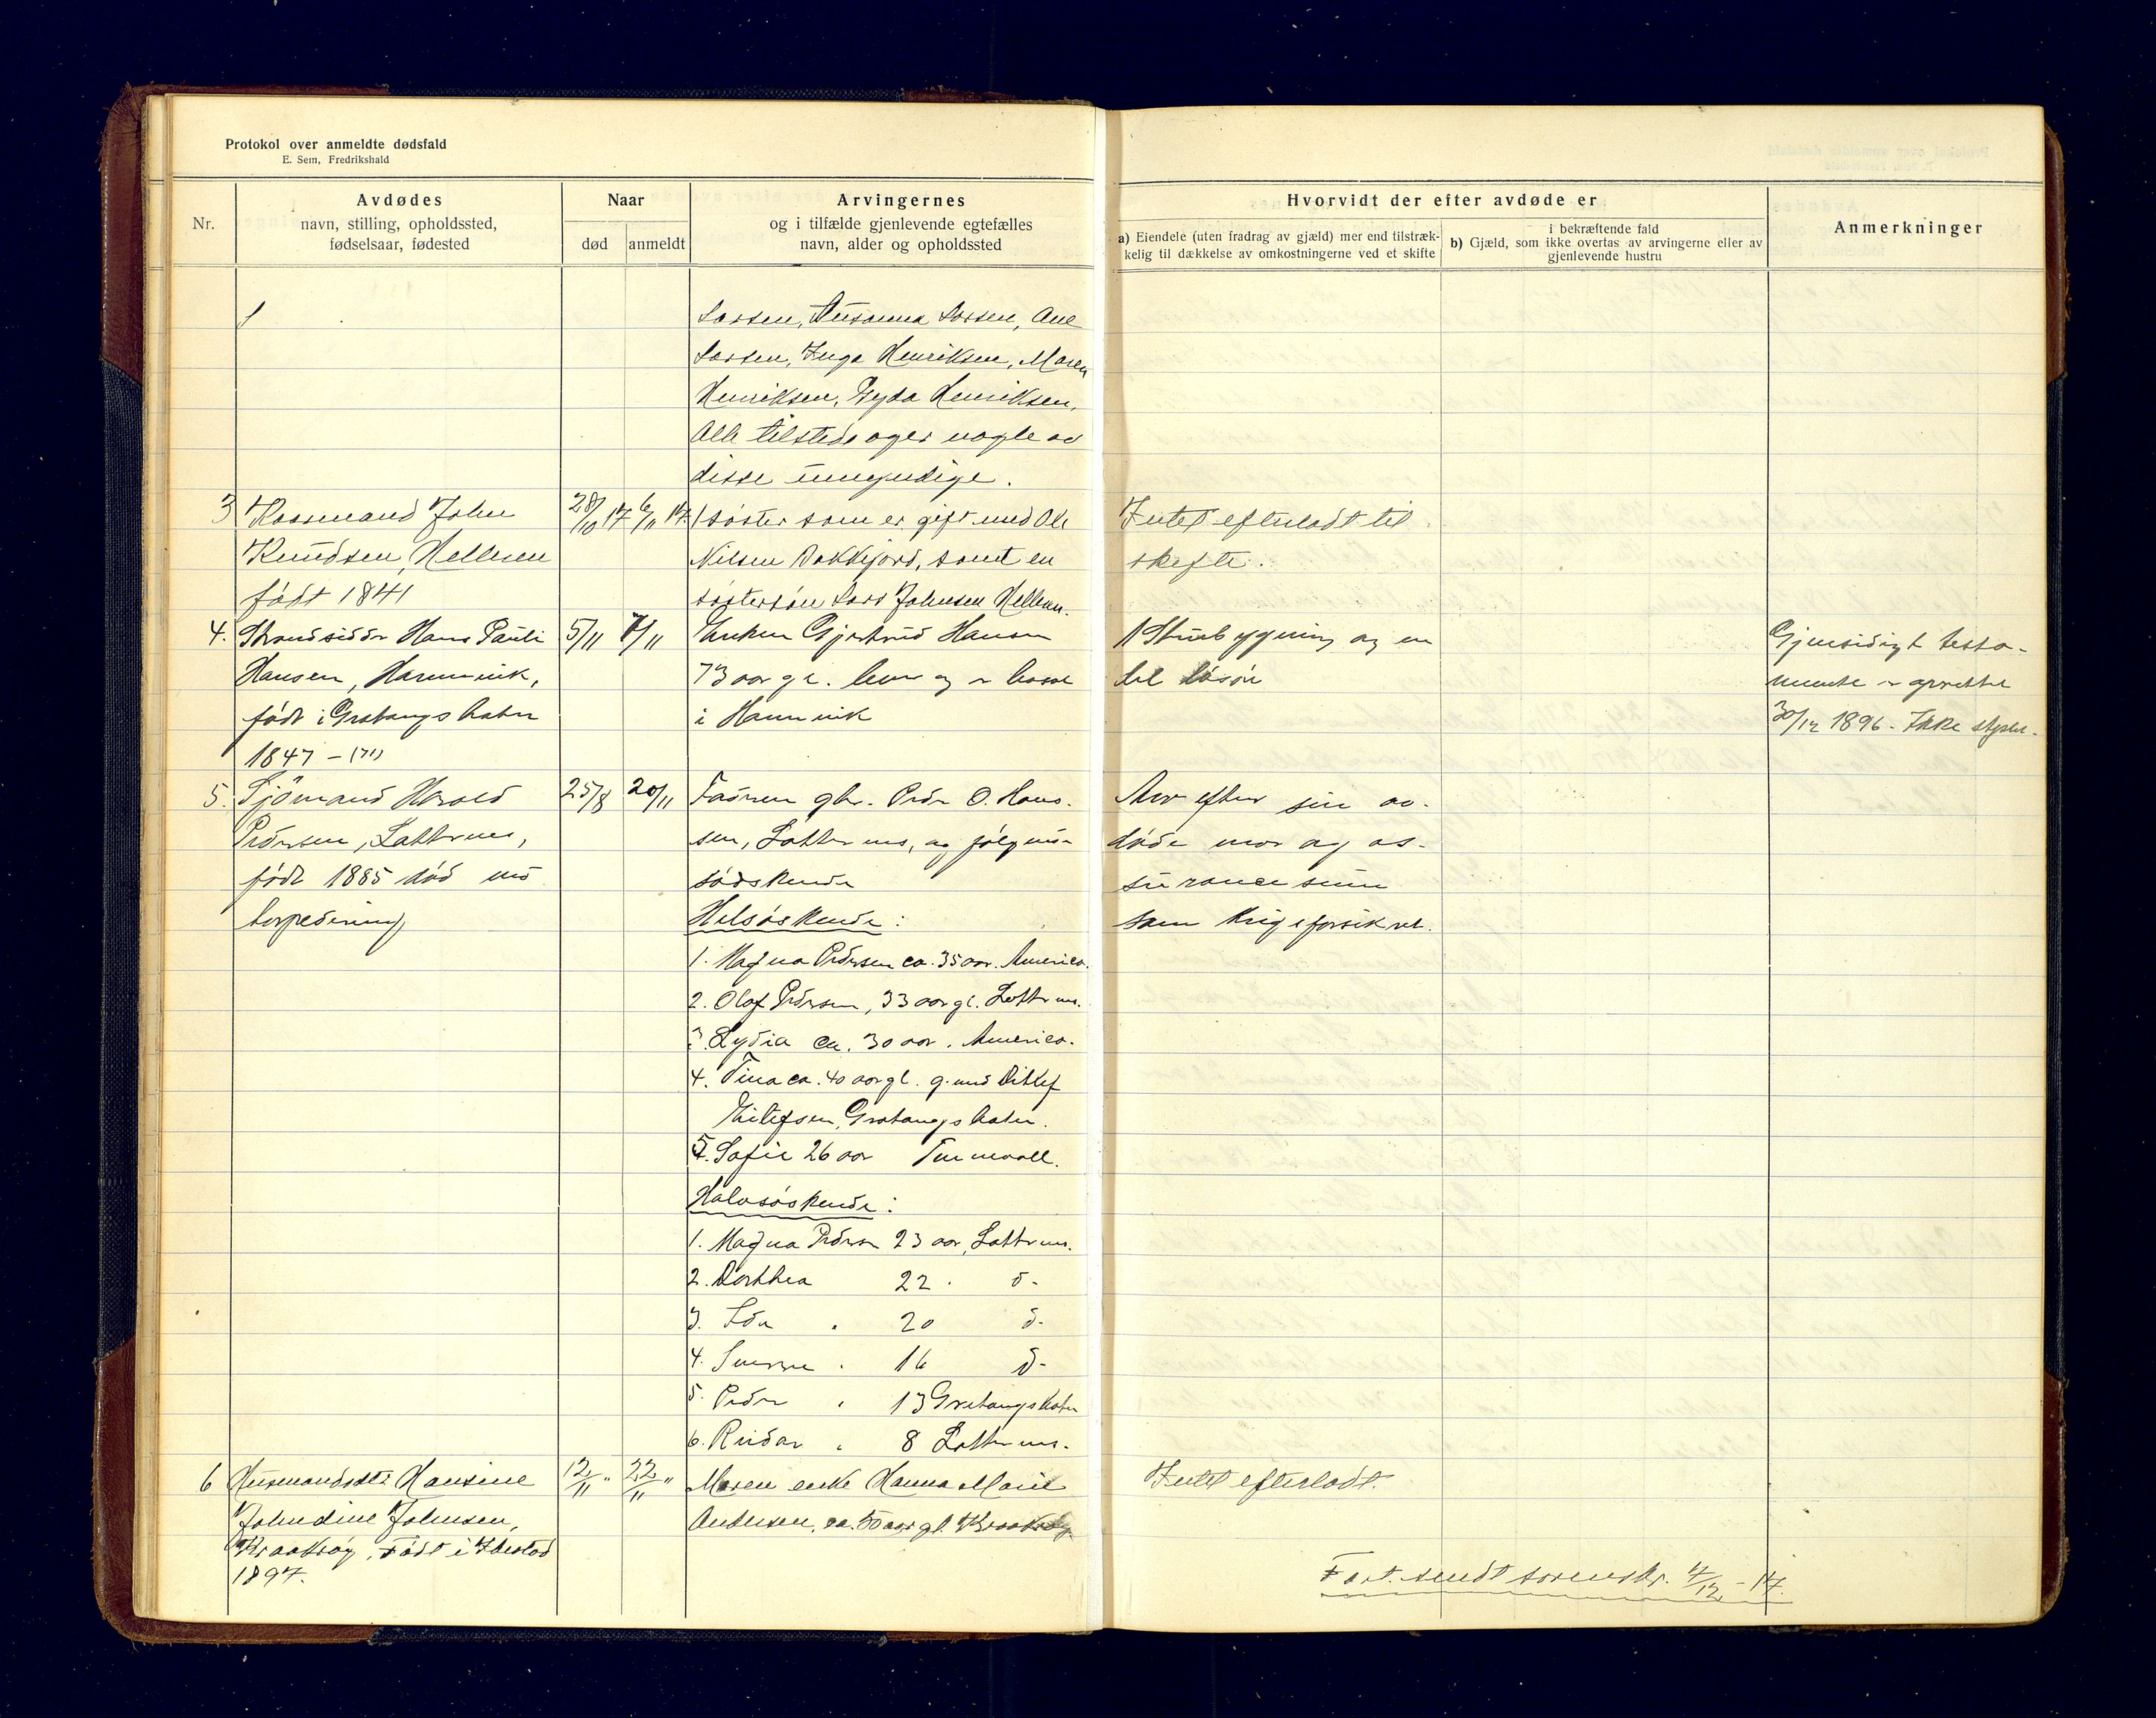 Protokol over anmeldte dødsfald
E. Sem, Fredrikshald
Nr.
Avdødes
navn, stilling, opholdssted,
fødselsaar, fødested
Naar
død
anmeldt
Arvingernes
og i tilfælde gjenlevende egtefælles
navn, alder og opholdssted
Hvorvidt der efter avdøde er
a) Eiendele (uten fradrag av gjæld) mer end tilstræk-
kelig til dækkelse av omkostningerne ved et skifte
i bekræftende fald
b) Gjæld, som ikke overtas av arvingerne eller av
gjenlevende hustru
Anmerkninger
Larsen, Susanna Larsen, Ane
Larsen, Inga Henriksen, Maren
Henriksen, Gyda Henriksen,
Alle tilstede og er nogle av
disse umyndige.
3 Kaarmand John
Knudsen, Hellaren
født 1841
28/10 17
6/11 17
1 søster som er gift med Ole
Nilsen Dokkfjord, samt en
søstersøn Lars Johnsen Hellaren.
Intet efterladt til
skifte.
4. Strandsidder Hans Pauli
Hansen, Hamnvik,
født i Gratangsbotn
1847 – (71)
5/11
7/11
Enken Gjertrud Hansen
73 aar gl. hun og er bosat
i Hamnvik
1 Stuebygning og en
del løsøre
Gjensidigt testa-
mente er oprettet
30/12 1896 - Ikke
5. Sjömand Harald
Pedersen, Latternes,
født 1885 død ved
torpedering
25/8
20/11
Faderen gbr. Peder O. Han-
sen, Latternes, og følgende
sødskende
Helsøskende:
1. Magna Pedersen ca. 35 aar. America.
2. Olaf Pedersen, 33 aar gl. Latternes.
3. Lydia ca. 30 aar. America.
4. Tina ca. 40 aar gl. g. med Ditlef
Eilefsen, Gratangsbotn.
5. Sofie 26 aar
Halvsøskende:
1. Magna Pedersen 23 aar, Latternes.
2. Dorthea 22 . d-
3. Ida 20 d-
4. Sverre 16 d-
5. Peder 13 Gratangsbotn
6. Reidar 8 Latternes.
Arv efter sin av-
døde mor og as-
surancesum
som krigsforsikret.
6 Husmandsdt. Hansine
Johndine Johnsen,
Kraakrøy, Født i Ibestad
1897.
12/11 "
22/11 "
Moren enke Hanna Marie
Andersen, ca. 50 aar gl. Kraakrøy
Intet efterladt.
Fort. sendt sorenskr. 4/12 - 17.